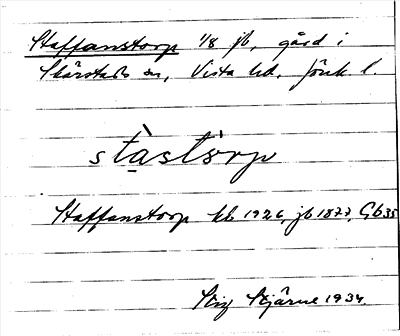 Staffanstorp 1/8 jb, gård i
Skärstads sn, Vista hd. Jönk. l.
stạ̀stòrp
Staffanstorp kb 1926, jb 1877, Gb 35
Stig Stjärne 1934